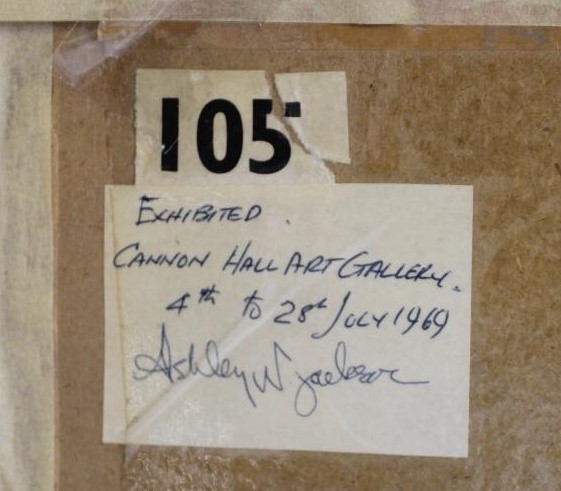 105
EXHIBITED.
CANNON HALL ART GALLERY.
4th to 28th JULY 1969
Ashley W Jackson